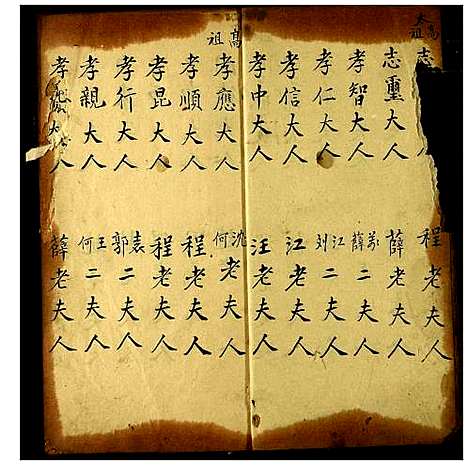 太高祖
志
程老夫人
志璽大人
薛老夫人
孝智大人
万薛二夫人
孝仁大人
江刘二夫人
孝信大人
江老夫人
孝中大人
汪老夫人
高祖
孝應大人
沈何老夫人
孝順大人
程老夫人
孝昆大人
程老夫人
孝行大人
袁郭二夫人
孝親大人
王何二夫人
孝 大人
薛老夫人